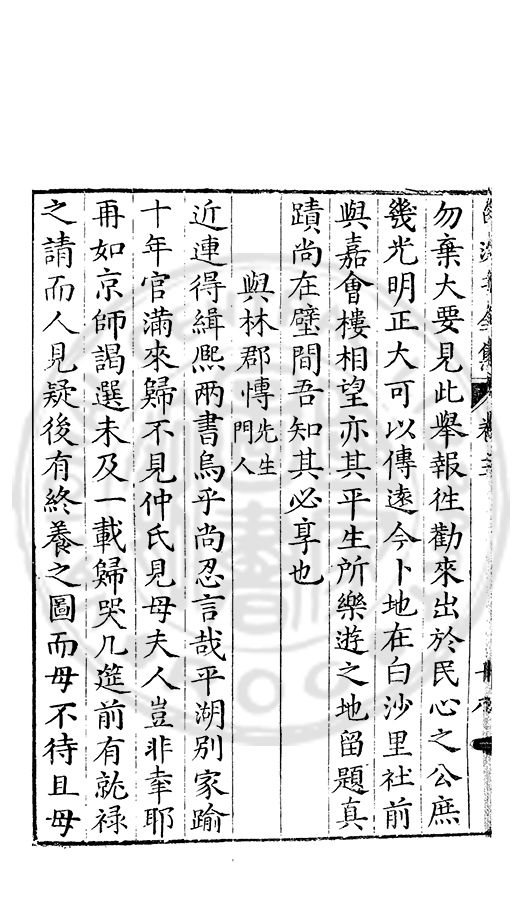 勿棄大要見此舉報徃勸來出於民心之公庶
幾光明正大可以傳遠今卜地在白沙里社前
與嘉會樓相望亦其平生所樂遊之地留題真
蹟尚在壁間吾知其必享也
與林郡博先生門人
近連得緝熈兩書烏乎尚忍言哉平湖別家踰
十年官滿來歸不見仲氏見母夫人豈非幸耶
再如京師謁選未及一載歸哭几筵前有就禄
之請而人見疑後有終養之圖而母不待且母